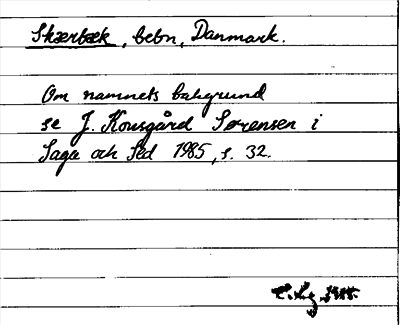 Skærbæk, bebn, Danmark.
Om namnets bakgrund
se J. Kousgård Sørensen i
Saga och Sed 1985, s. 32.